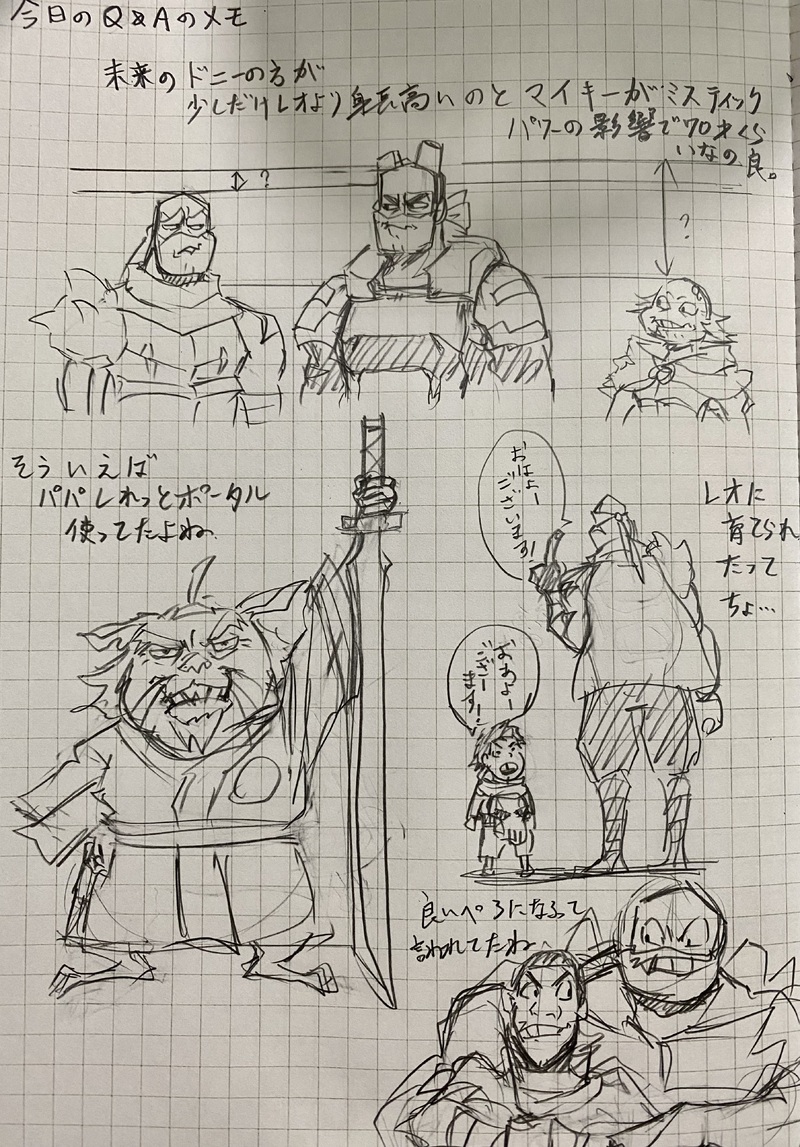 今日のQ&Aのメモ
未来のドニーの方が
少しだけレオより身長高いのと マイキーがミスティック
パワーの影響で70才くら
いなの良。
?
?
そういえば
パパしれっとポータル
使ってたよね
おはよー
ございます!
おあよー
ござー
ます!
レオに
育てられ
たって
ちょ…
良いペろになるって
言われてたね